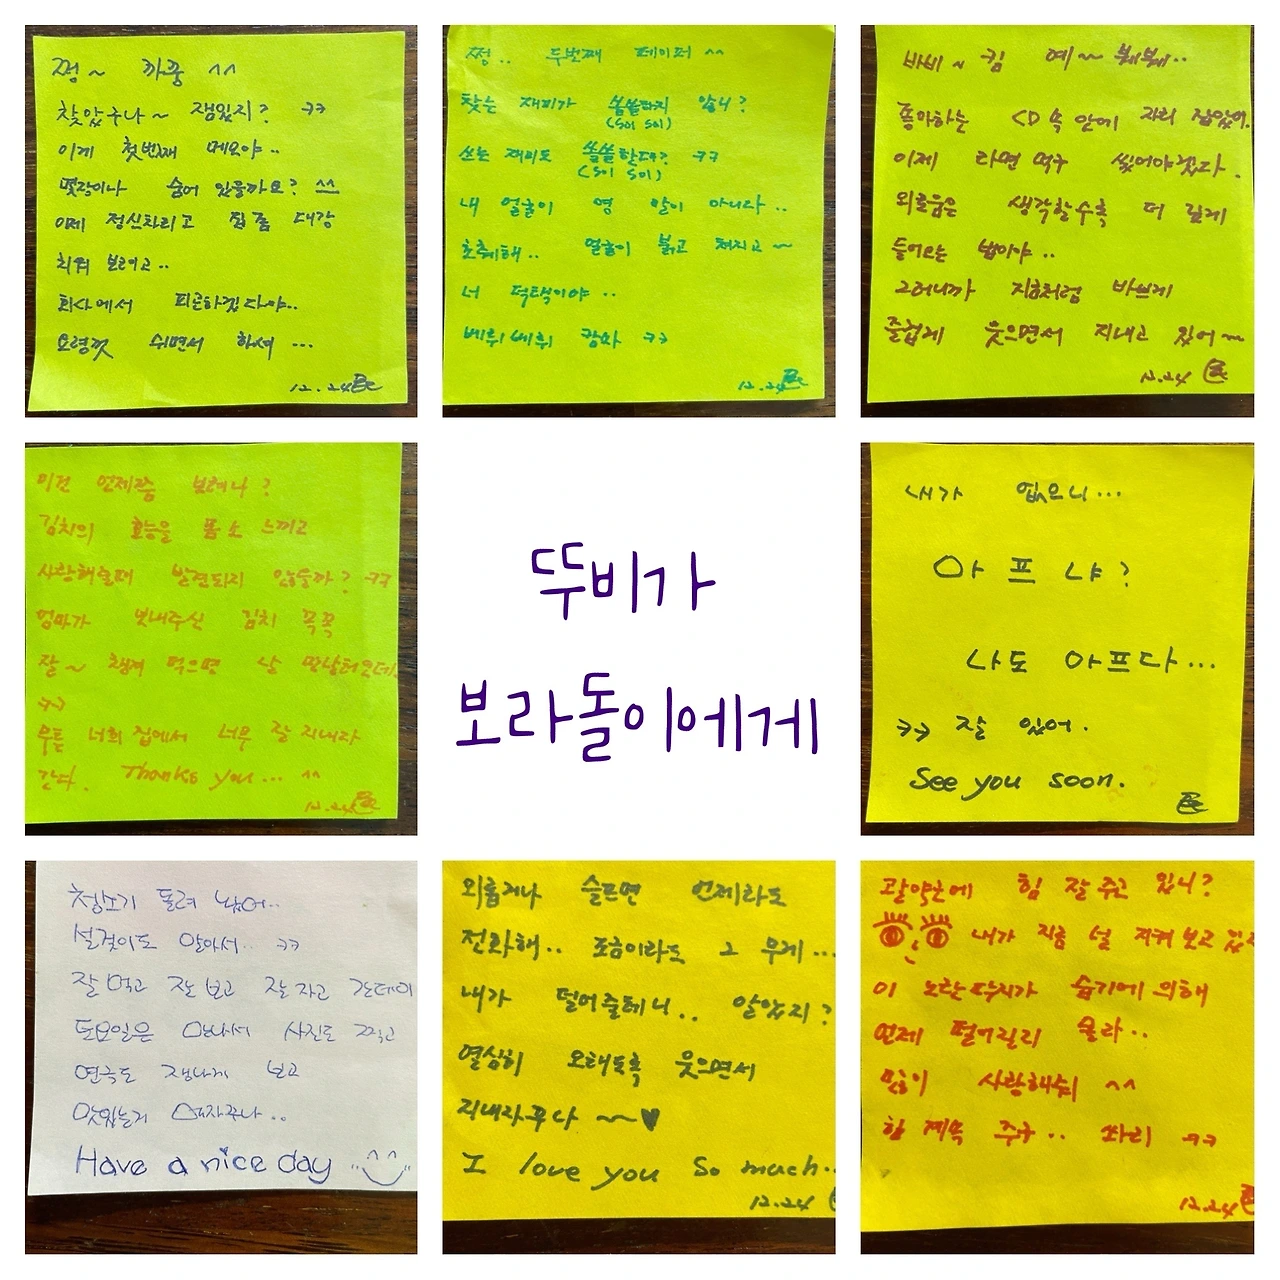 쩡~ 까꿍 ^^
찾았구나~ 잼있지? ㅋㅋ
이게 첫번째 메모야..
몇장이나 숨어 있을까요? ^^
이제 정신차리고 집 좀 대강
치워 보라고..
회사에서 피곤하겠다야..
요령껏 쉬면서 하셔 ...
12.24
쩡.. 두번째 페이퍼 ^^
찾는 재미가 쏠쏠하지 않니?
(sol sol)
쓰는 재미도 쏠쏠한데? ㅋㅋ
(sol sol)
내 얼굴이 영 말이 아니다..
초췌해.. 얼굴이 붉고 쳐지고 ~
너 덕택이야..
베뤼베뤼 캄솨 ㅋㅋ
12.24
바비~킴 예~ 붸붸..
좋아하는 CD 속 안에 자리 잡았어.
이제 라면 먹구 씻어야겠다.
외로움은 생각할수록 더 깊게
들어오는 법이야..
그러니까 지금처럼 바쁘게
즐겁게 웃으면서 지내고 있어~
12.24
이건 언제쯤 보려나?
김치의 효능을 몸소 느끼고
사랑해줄때 발견되지 않을까? ㅋㅋ
엄마가 보내주신 김치 꼭꼭
잘~ 챙겨 먹으면 날 만날터인데.
ㅋㅋ
무튼 너희 집에서 너무 잘 지내다
간다. Thanks you... ^^
12.24
뚜비가
보라돌이에게
내가 없으니...
아프냐?
나도 아프다...
ㅋㅋ 잘 있어.
See you soon.
청소기 돌려 놨어..
설겆이도 알아서.. ㅋㅋ
잘 먹고 잘 보고 잘 자고 간데이
토요일은 만나서 사진도 찍고
연극도 잼나게 보고
맛있는거 먹자꾸나..
Have a nice day
외롭거나 슬프면 언제라도
전화해.. 조금이라도 그 무게...
내가 덜어줄테니.. 알았지?
열심히 오래도록 웃으면서
지내자꾸나 ~~♥
I love you so much..
12.24
괄약근에 힘 잘 주고 있니?
내가 지금 널 지켜 보고 있다
이 노란딱지가 습기에 의해
언제 떨어질지 몰라..
많이 사랑해줘 ^^
힘 계속 주구.. 쏴리 ㅋㅋ
12.24